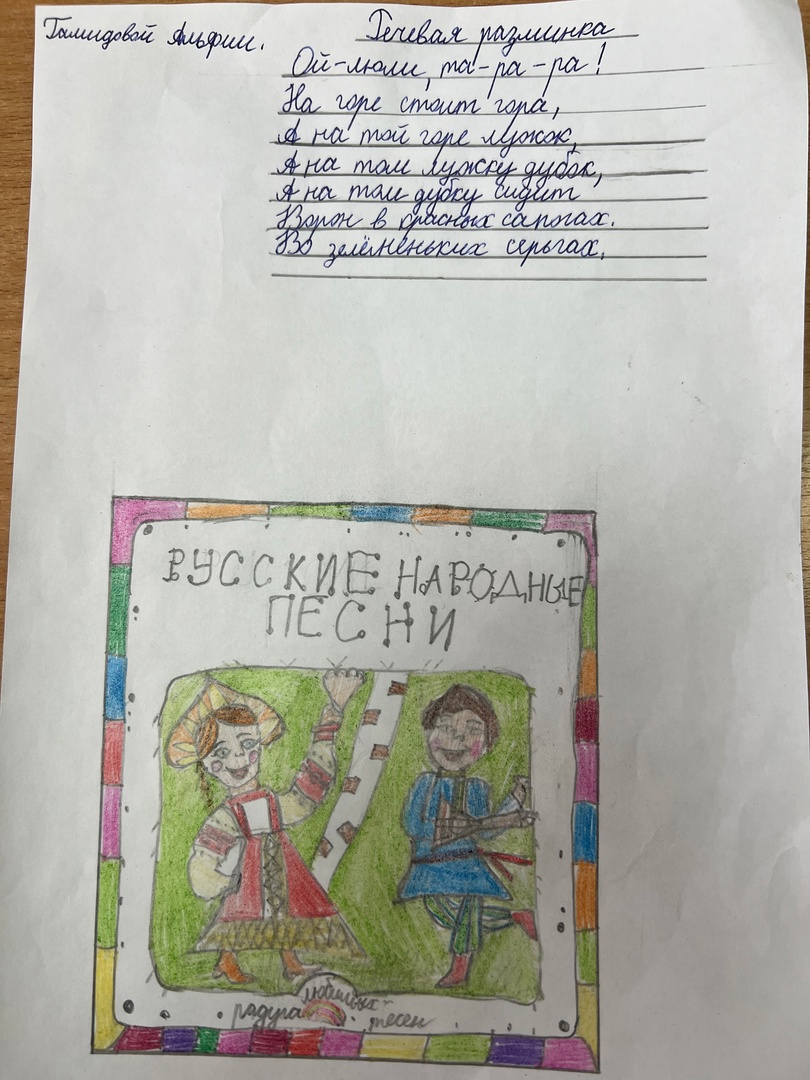 Гамидовой Альфии.
Речевая разминка
Ой-люли, та-ра-ра!
На горе стоит гора,
А на той горе лужок,
А на том лужку дубок,
А на том дубку сидит
Ворон в красных сапогах.
Во зелёненьких серьгах.
РУССКИЕ НАРОДНЫЕ
ПЕСНИ
радуга любимых песен